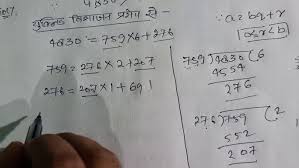 4830
युक्लिड विभाजन प्रमेय से-
4830 = 759×6+276
759 = 276×2+207
276 = 207×1+69
∵ a=bq+r
0≤r<b
759)4830(6
4554
276
276)759(2
552
207